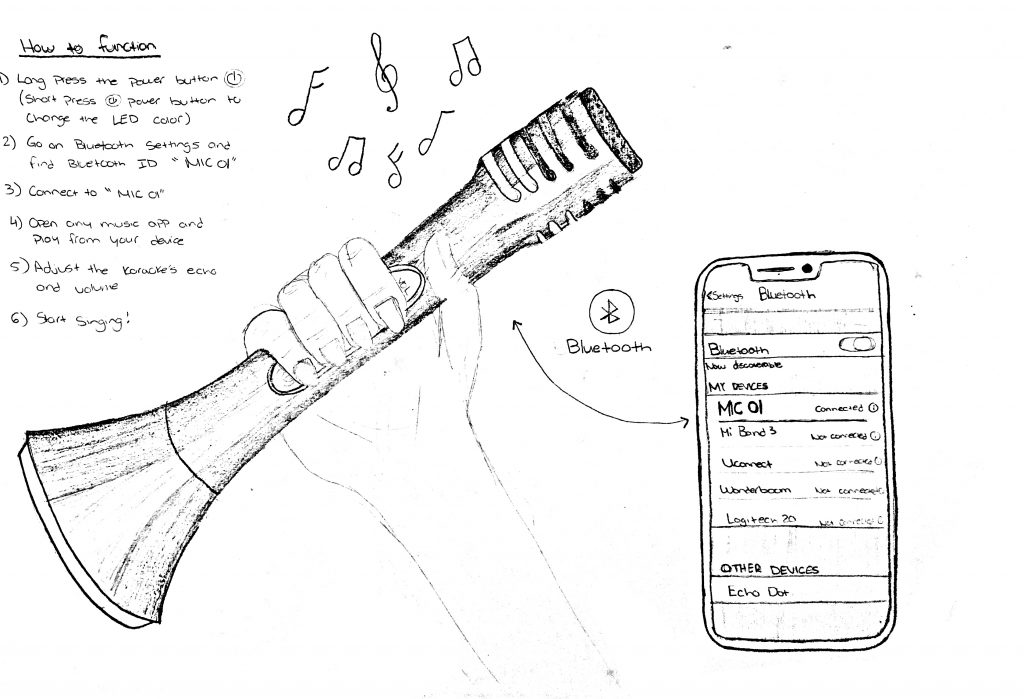 How to function
1) Long Press the power button
(Short press power button to
Change the LED color)
2) Go on Bluetooth Settings and
find Bluetooth ID "MIC 01"
3) Connect to "MIC 01"
4) Open any music app and
Play from your device
5) Adjust the karaoke's echo
and volume
6) Start Singing!
Bluetooth
<Settings Bluetooth
Bluetooth
Now discoverable
MY DEVICES
MIC 01 Connected
Mi Band 3 Not connected
Uconnect Not connected
Wonderboom Not connected
Logitech 20 Not connected
OTHER DEVICES
Echo Dot